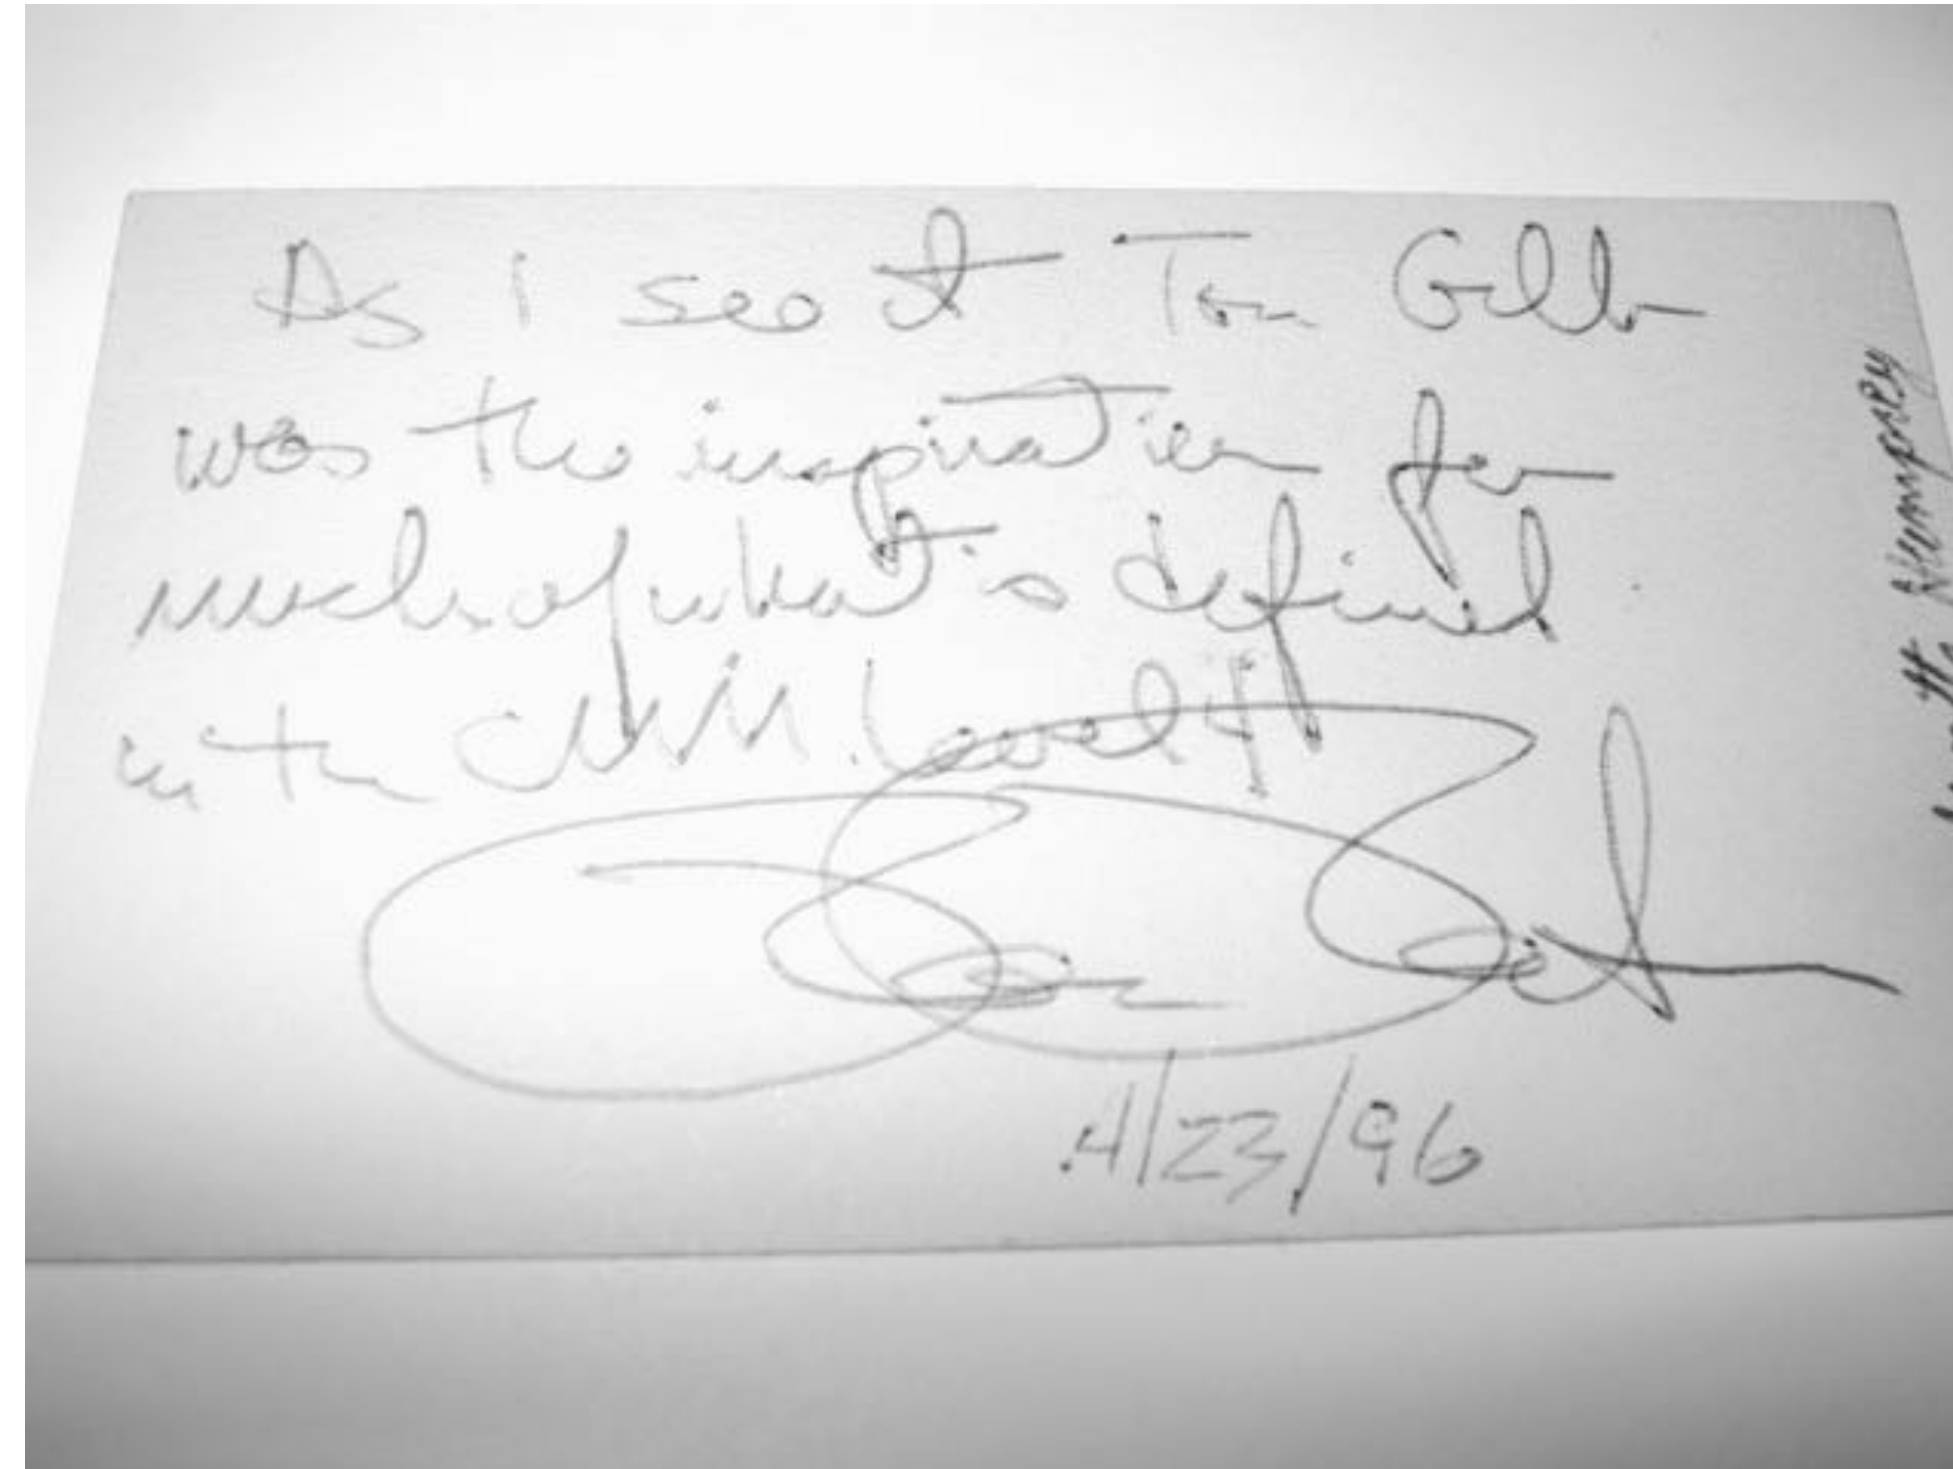 As I see it Tom Gilb
was the inspiration for
much of what is defined
in the CMM Level 4
4/23/96
Humphrey